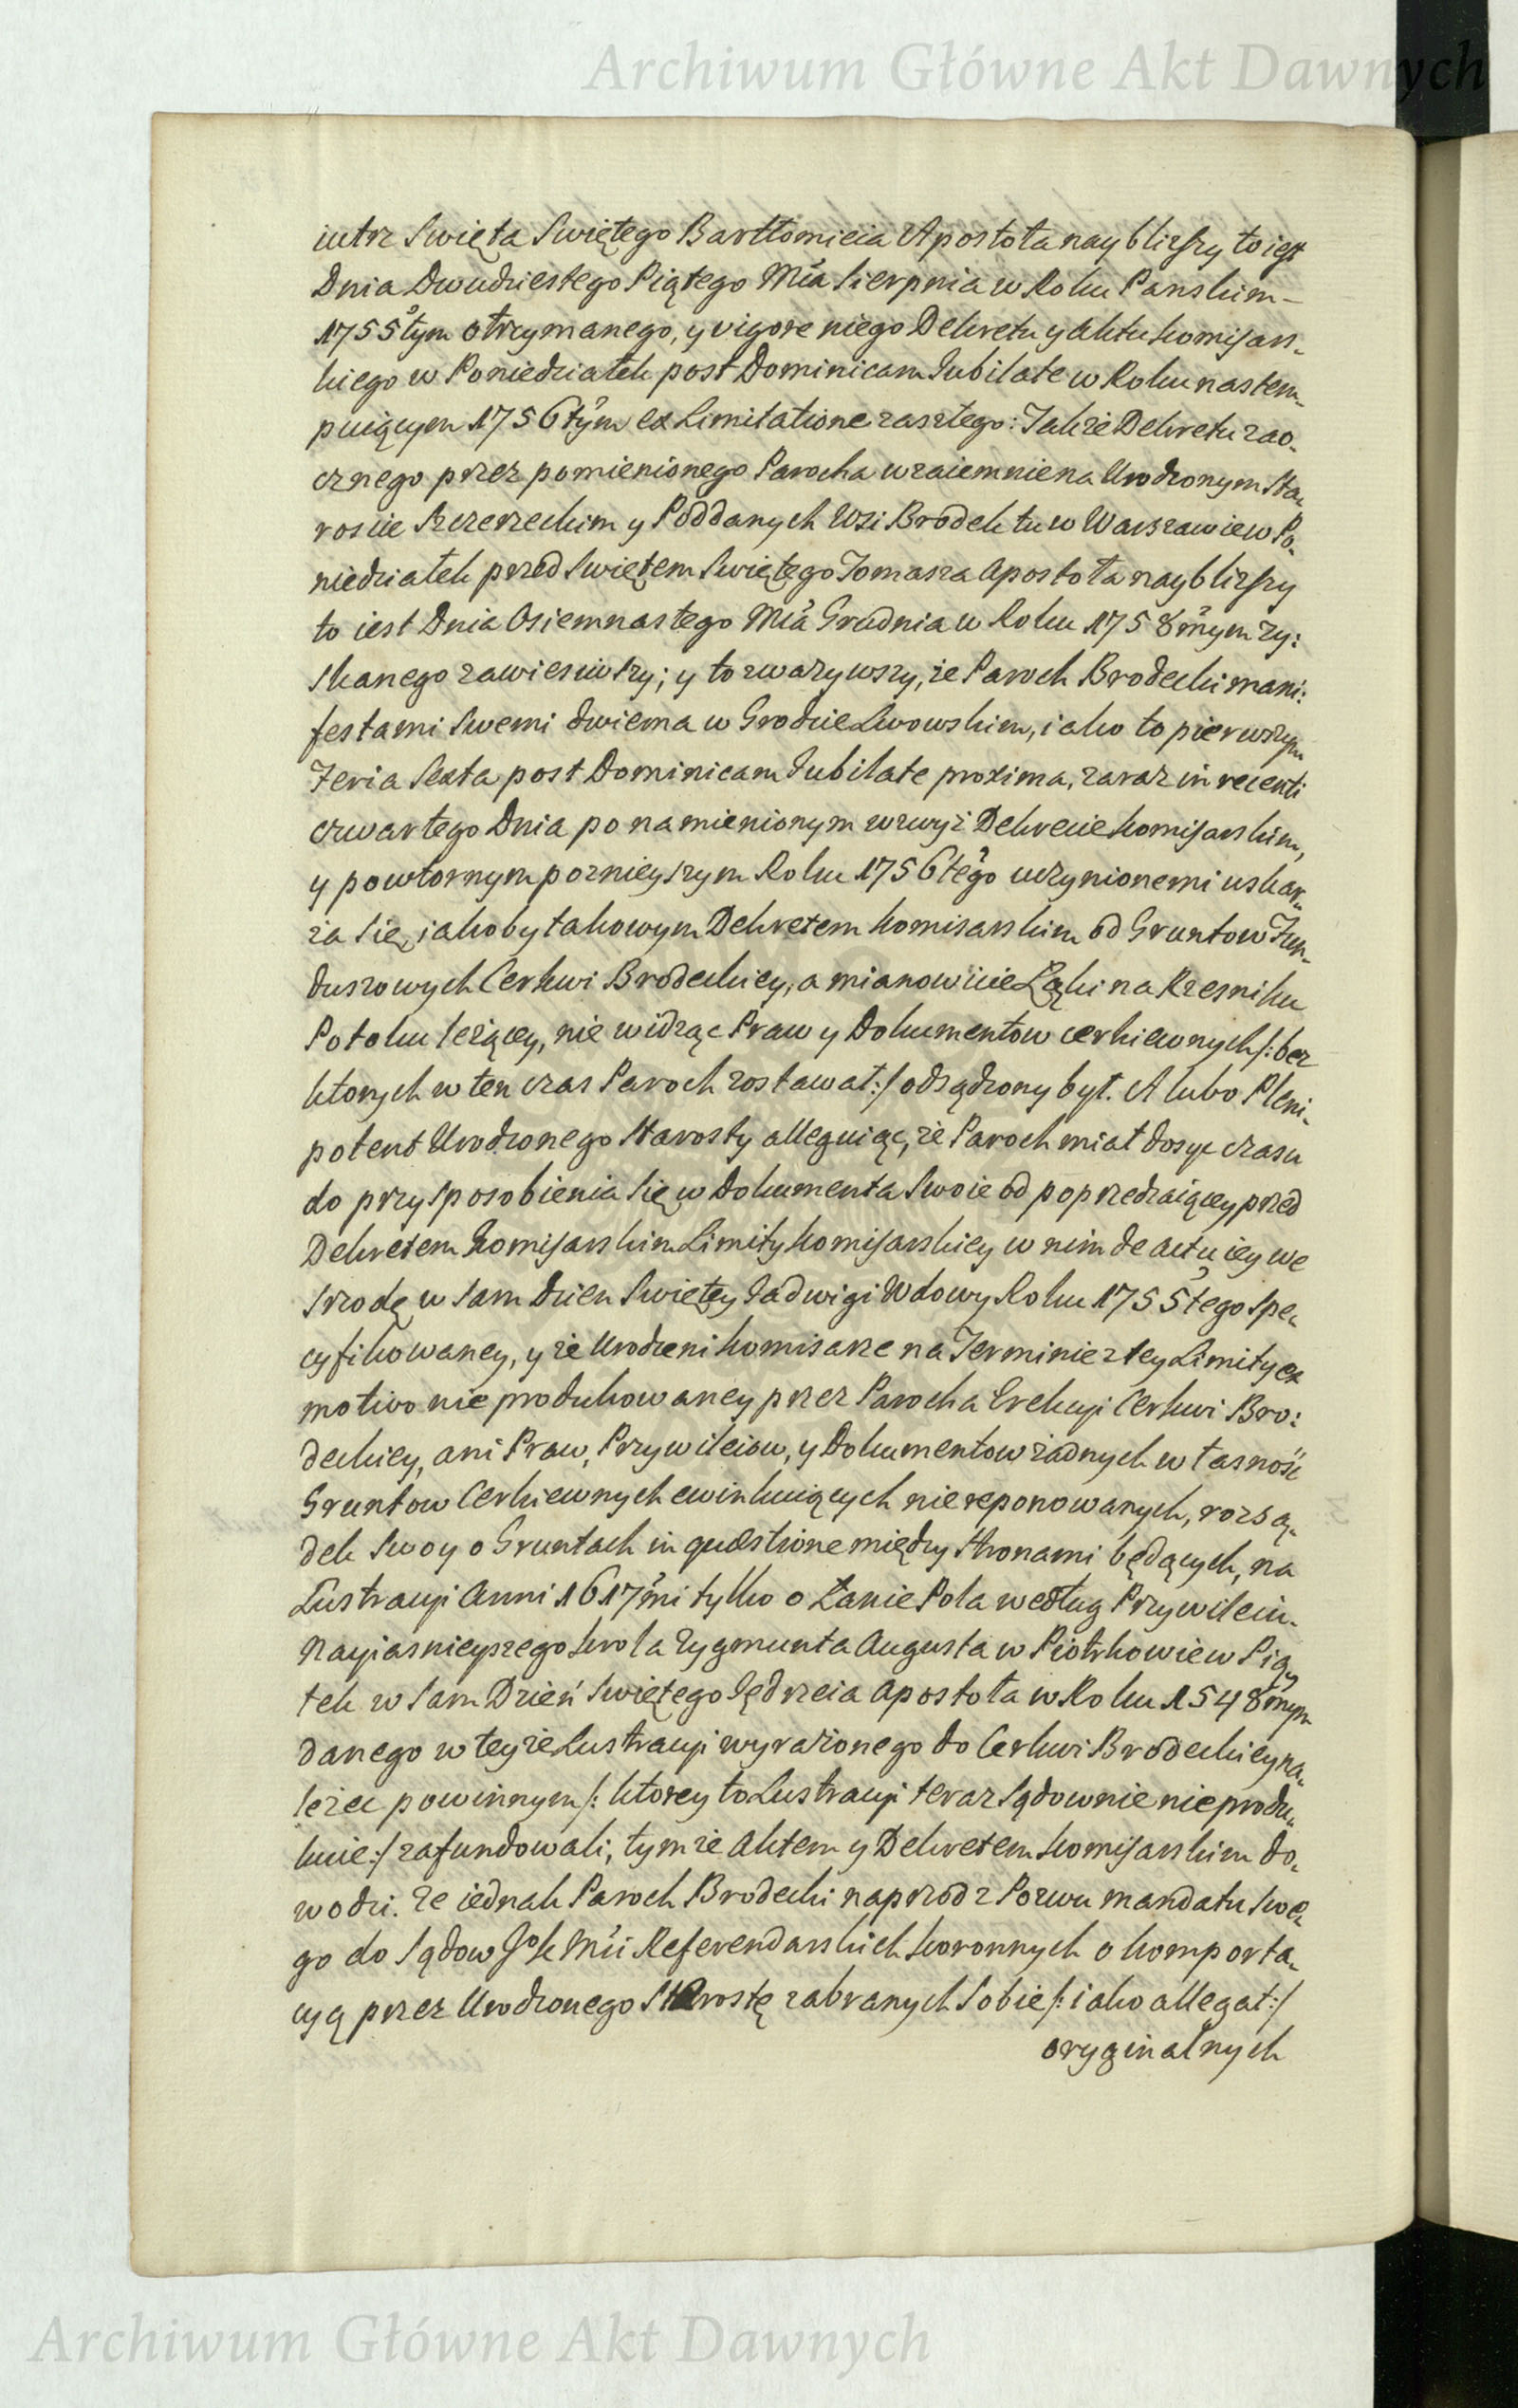 Archiwum Główne Akt Dawnych
iutrz Swięta Swiętego Bartłomieia Apostoła nayblizszy to iest
Dnia Dwudziestego Piątego Mca Sierpnia w Roku Panskim –
1755tym otrzymanego, y vigore niego Dekretu y Aktu komisars-
kiego w Poniedziałek post Dominicam Jubilate w Roku nastem-
puiącym 1756tym ex Limitatione zaszłego: Jakże Dekretu zao-
cznego przez pomienionego Parocha wzaiemnie na Urodzonym Sta-
roscie Szczerzeckim y Poddanych Wsi Brodek tu w Warszawie w Po-
niedziałek przed Swiętem Swiętego Tomasza Apostoła nayblizszy
to iest Dnia Osiemnastego Mca Grudnia w Roku 1758mym zy:
skanego zawiesiwszy; y to zwazywszy, że Paroch Brodecki mani:
festami Swemi dwiema w Grodzie Lwowskim, iako to pierwszym
Feria Sexta post Dominicam Jubilate proxima, zaraz in recenti
czwartego Dnia po namienionym wzwyż Dekrecie komisarskim,
y powtornym poznieyszym Roku 1756tego uczynionemi uskar-
za Się, iakoby takowym Dekretem komisarskim od Gruntow Fun-
duszowych Cerkwi Brodeckiey, a mianowicie Łąki na Rzesniku
Potoku leżącey, nie widząc Praw y Dokumentow cerkiewnych /: bez
ktorych w ten czas Paroch zostawał :/ odsądzony był. A lubo Pleni-
potent Urodzonego Starosty alleguiąc, że Paroch miał dosyc czasu
do przysposobienia Się w Dokumenta Swoie od poprzedzaiącey przed
Dekretem komisarskim Limity komisarskiey w nim de actu iey we
Srzodę w Sam Dzien Swiętey Jadwigi Wdowy Roku 1755tego spe-
cyfikowaney, y że Urodzeni komisarze na Terminie z tey Limity ex
motivo nie produkowaney przez Parocha Erekcyi Cerkwi Bro:
deckiey, ani Praw, Przywileiow, y Dokumentow żadnych własność
Gruntow Cerkiewnych ewinkuiących nie reponowanych, rozsą-
dek Swoy o Gruntach in quæstione między Stronami będących, na
Lustracyi Anni 1617mi tylko o Łanie Pola według Przywileiu
Nayiasnieyszego krola Zygmunta Augusta w Piotrkowie w Pią-
tek w Sam Dzień Swiętego Jędrzeia Apostoła w Roku 1548mym
danego w teyże Lustracyi wyrażonego do Cerkwi Brodeckiey na-
leżec powinnym /: ktorey to Lustracyi teraz Sądownie nie produ-
kuie :/ zafundowali, tymże Aktem y Dekretem komisarskim do-
wodzi. Ze iednak Paroch Brodecki naprzod z Pozwu mandatu Swe-
go do Sądow JoK Mci Referendarskich koronnych o komporta-
cyą przez Urodzonego Starostę zabranych Sobie /: iako allegat :/
oryginalnych
Archiwum Główne Akt Dawnych